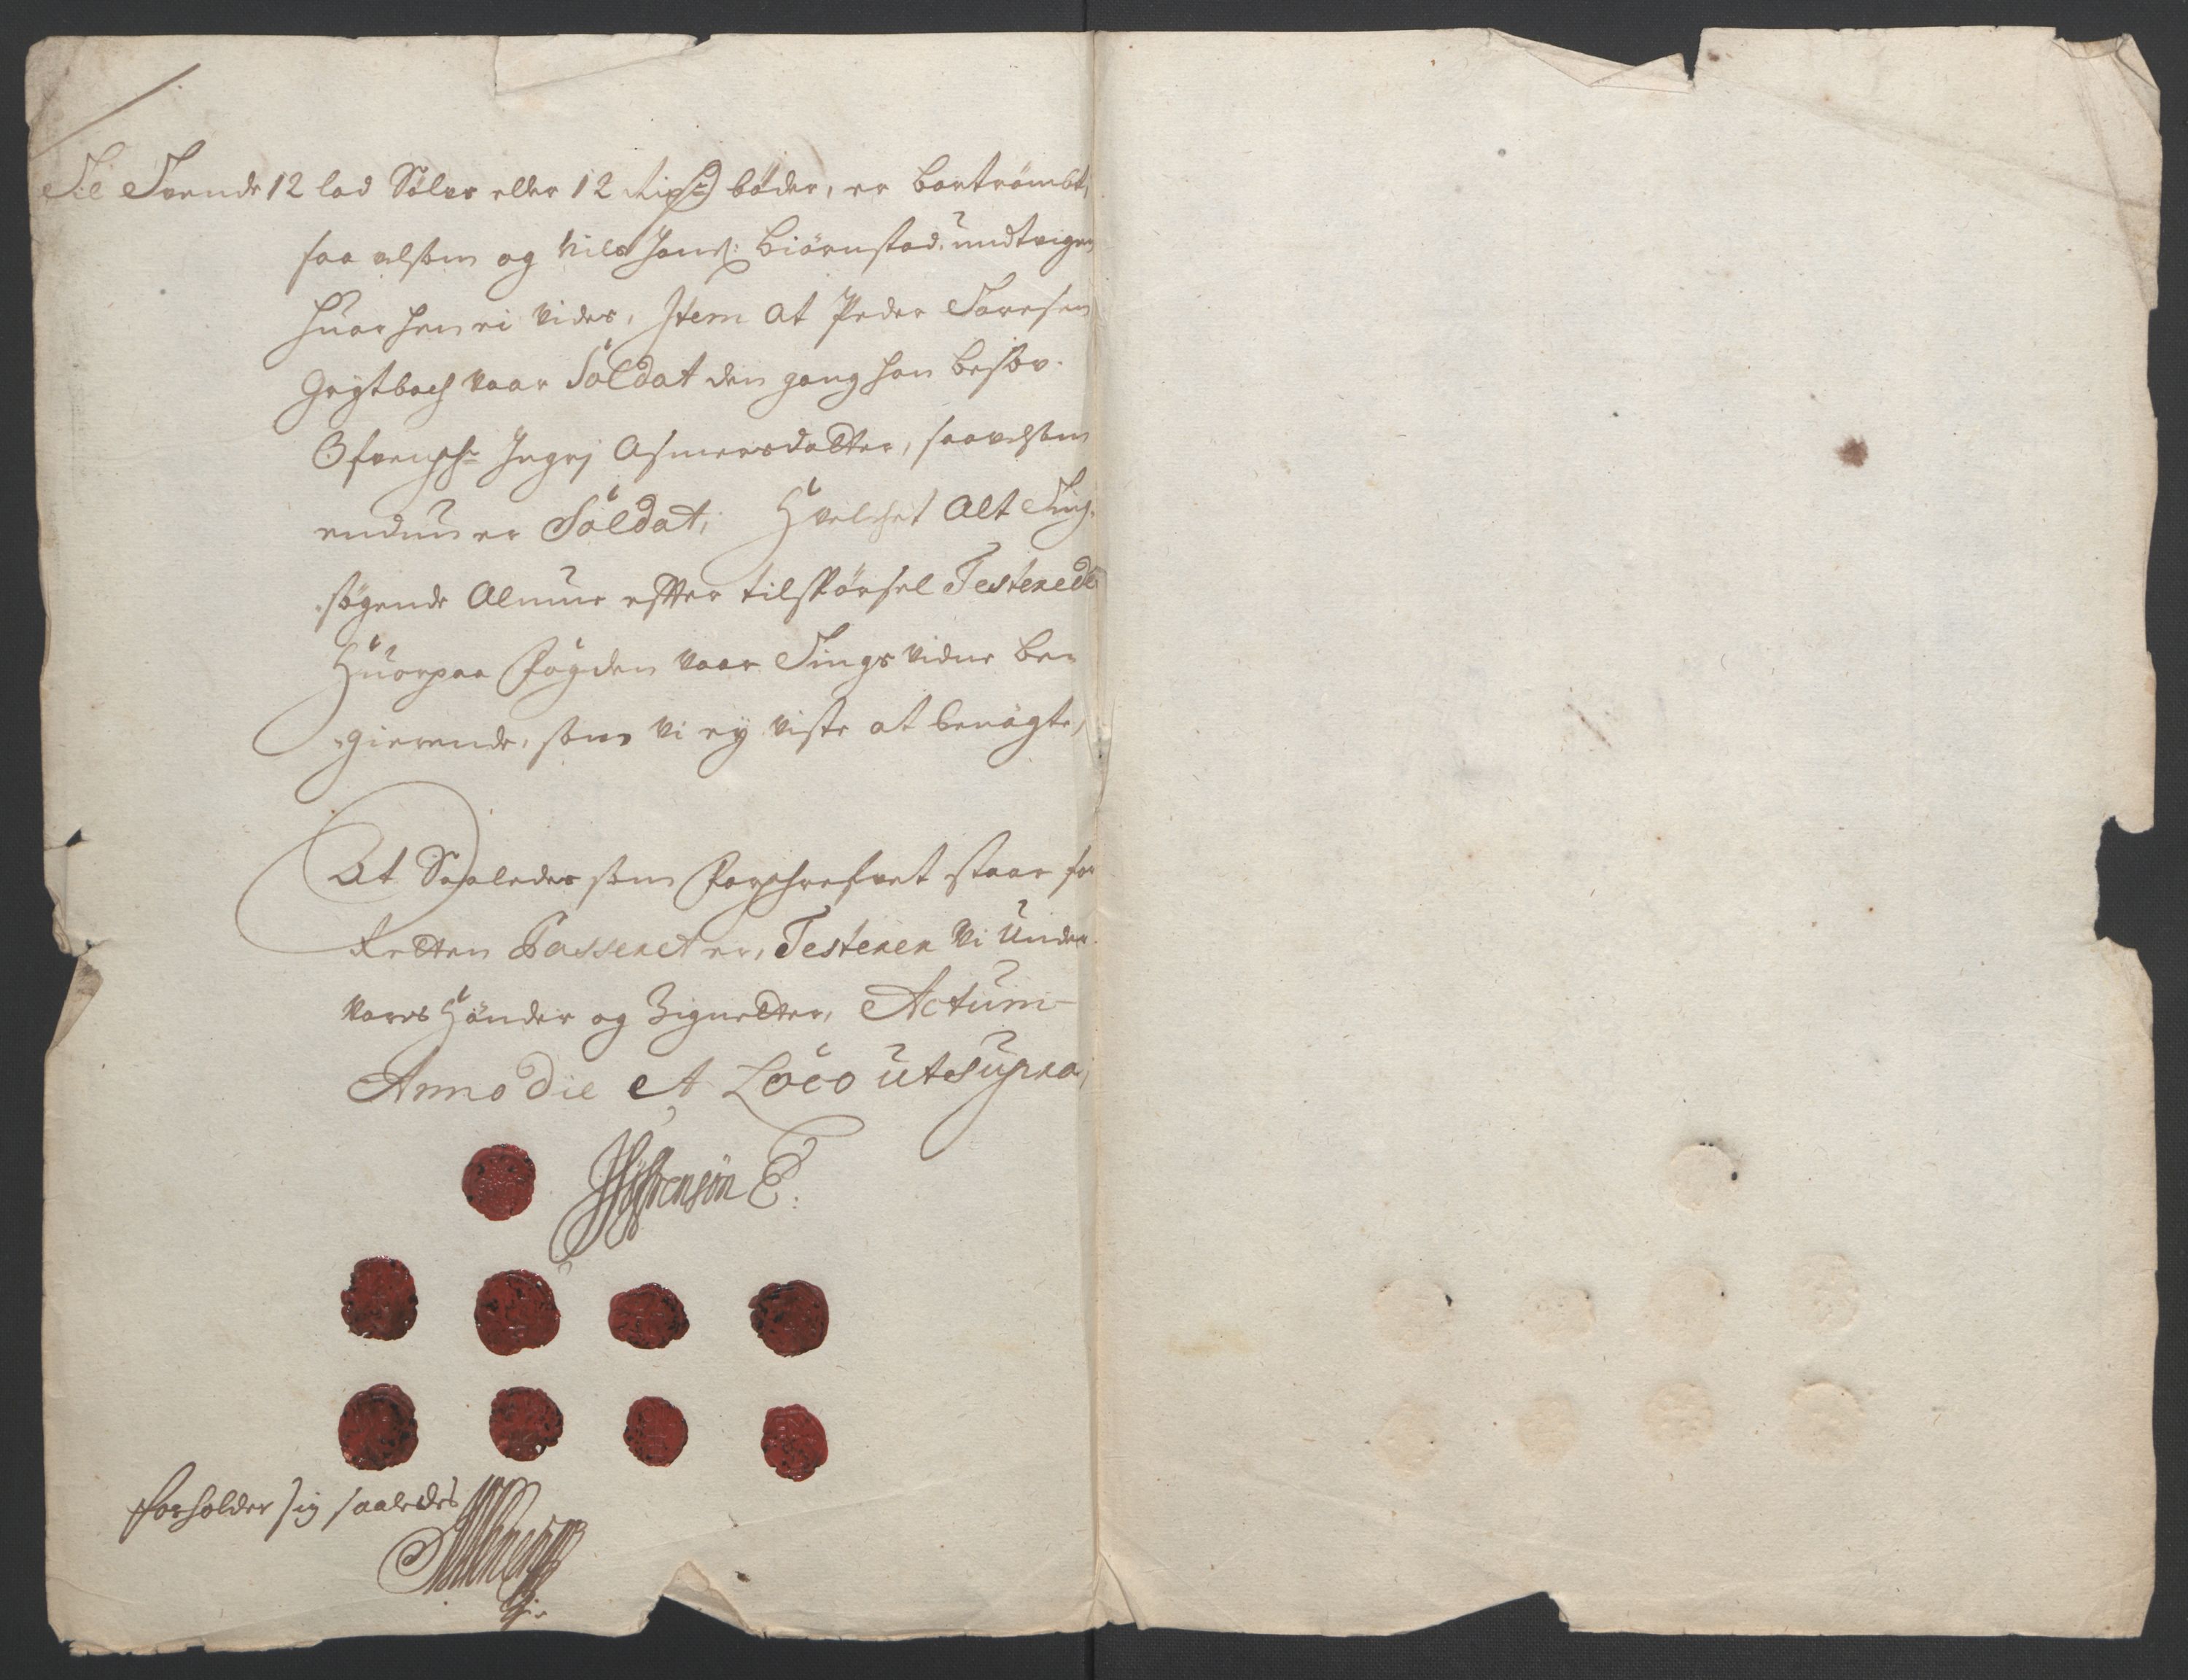 Til Trende 12 lod Sölv eller 12 bøder, er bortrömbt,
saa velsom og Nils Jons: Biörnstad, undtvigen
huor hen ei vides, Item at Peder Toresen
Grytbach vaar Soldat den gang han besov
Ofvensch: Ingrj Asmersdatter, saavelsom
endnu er Soldat, Hvelchet Alt Ting
søgende Almue effter tilspörsel Testerede
Huorpaa fogden vaar Tingsvidne be-
gierende, som vi ey viste at benägte,
At Saaledes som forschrefvet staar for
Retten Passeret er, Testerer vi under
vores Hænder og Zignetter, Actum
Anno die et Loco ut supra,
forholder sig saaledes